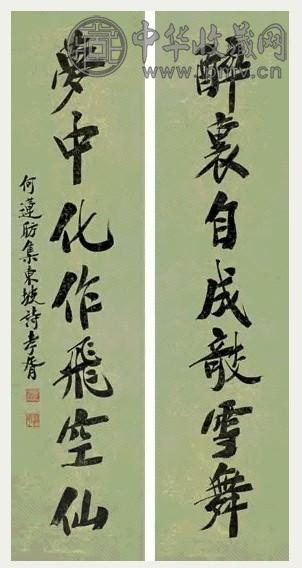 中华收藏网
醉裏自成雪舞
夢中化作飛空仙
何蓮舫集東坡詩孝胥